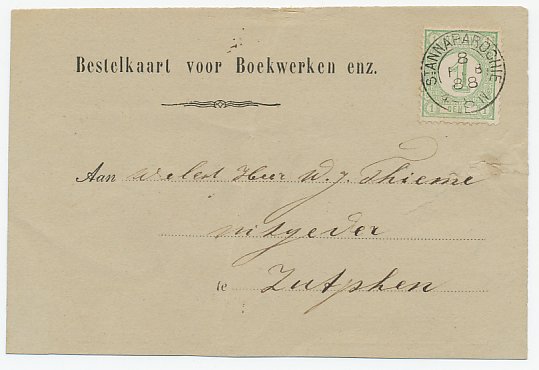 Bestelkaart voor Boekwerken enz.
ST ANNAPAROCHIE
8
FEB
88
1
CENT
Aan Weledel Heer W. J. Thieme
uitgever
te Zutphen